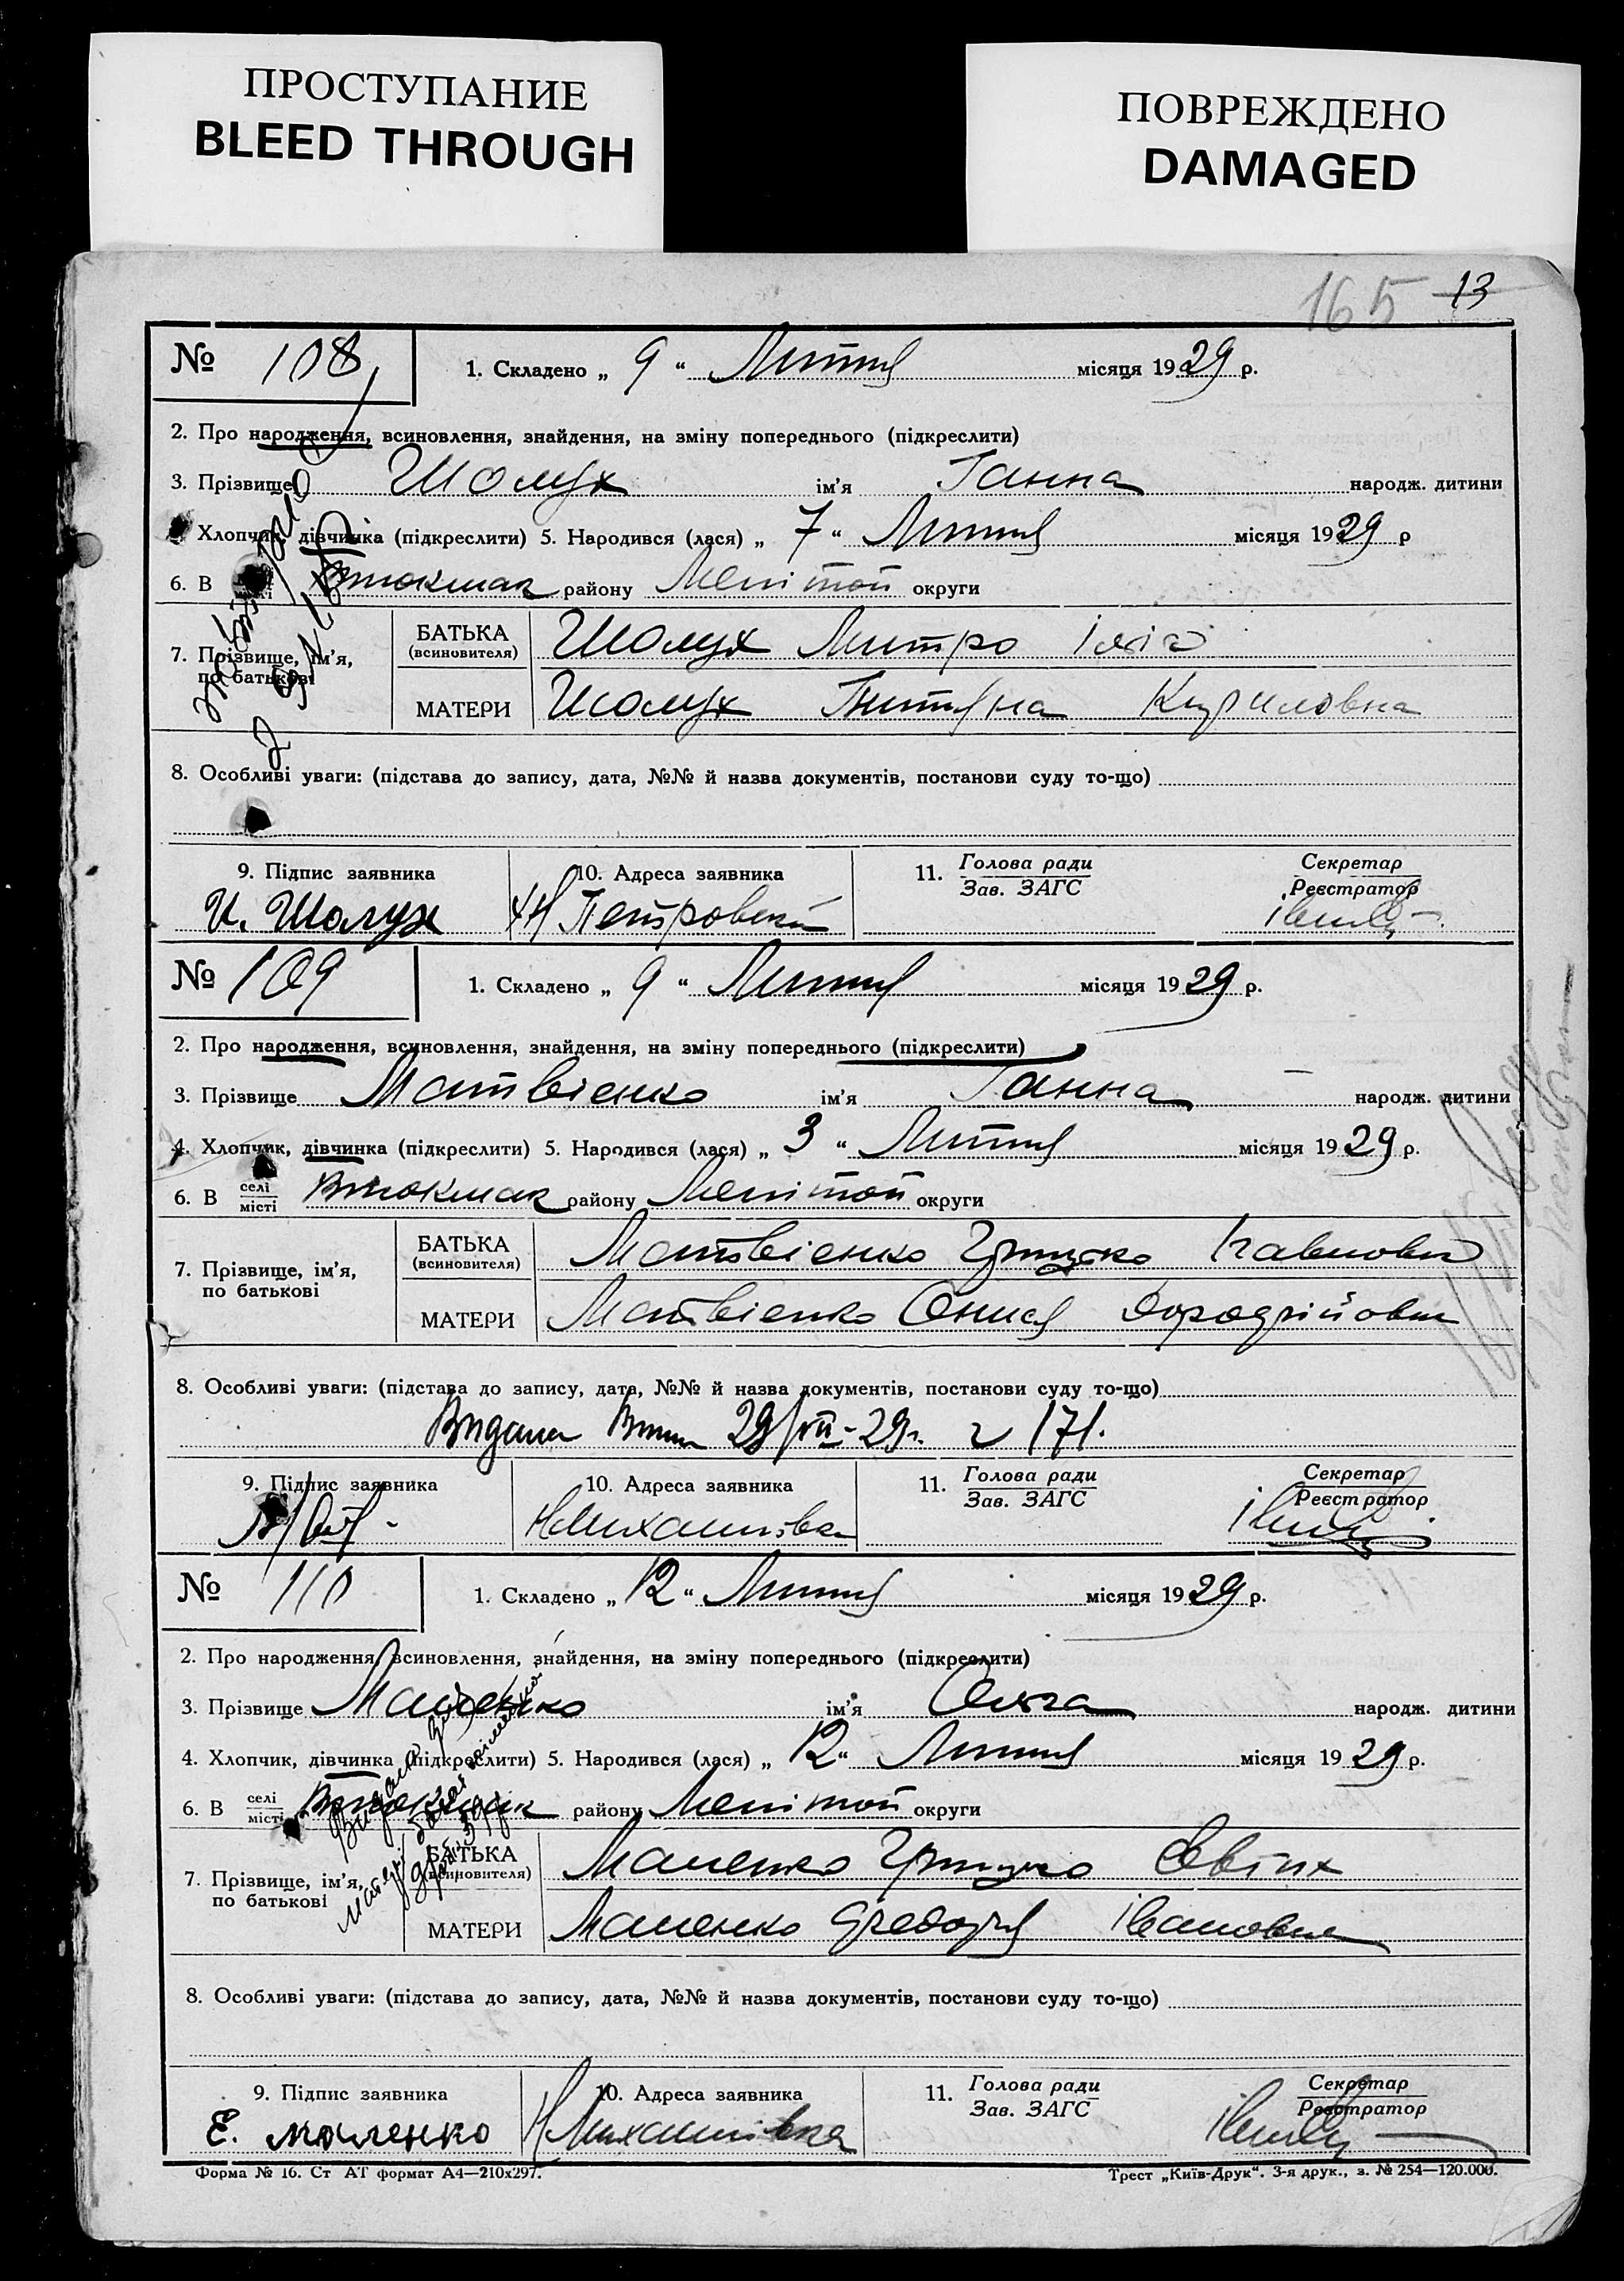 ПРОСТУПАНИЕ
BLEED THROUGH
ПОВРЕЖДЕНО
DAMAGED
165 13
№ 108 1. Складено „ 9 “ Лютня місяця 1929 р.
2. Про народження, всиновлення, знайдення, на зміну попереднього (підкреслити)
3. Прізвище Шолух ім’я Ганна народж. дитини
Хлопчик, дівчинка (підкреслити) 5. Народився (лася) „ 7 “ Лютня місяця 1929 р
6. В місті Втокмак району Мелітоп округи
7. Прізвище, ім’я, по батькові
БАТЬКА (всиновителя) Шолух Дмитро
МАТЕРИ Шолух Титяна Кириловна
8. Особливі уваги: (підстава до запису, дата, №№ й назва документів, постанови суду то-що)
9. Підпис заявника 10. Адреса заявника 11. Голова ради Секретар
Зав. ЗАГС Реєстратор
И. Шолух Петровский
№ 109 1. Складено „ 9 “ Лютня місяця 1929 р.
2. Про народження, всиновлення, знайдення, на зміну попереднього (підкреслити)
3. Прізвище Матвієнко ім’я Ганна народж. дитини
4. Хлопчик, дівчинка (підкреслити) 5. Народився (лася) „ 3 “ Лютня місяця 1929 р.
6. В селі місті Втокмак району Мелітоп округи
7. Прізвище, ім’я, по батькові
БАТЬКА (всиновителя) Матвієнко Грицько Павлович
МАТЕРИ Матвієнко Онися
8. Особливі уваги: (підстава до запису, дата, №№ й назва документів, постанови суду то-що)
Видана 29/VII-29р. 171.
9. Підпис заявника 10. Адреса заявника 11. Голова ради Секретар
Зав. ЗАГС Реєстратор
НМихайлівка
№ 110 1. Складено „ 12 “ Лютня місяця 1929 р.
2. Про народження, всиновлення, знайдення, на зміну попереднього (підкреслити)
3. Прізвище Маленко ім’я Ольга народж. дитини
4. Хлопчик, дівчинка (підкреслити) 5. Народився (лася) „ 12 “ Лютня місяця 1929 р.
6. В селі місті Втокмак району Мелітоп округи
7. Прізвище, ім’я, по батькові
БАТЬКА (всиновителя) Маленко Грицько
МАТЕРИ Маленко Федора Івановна
8. Особливі уваги: (підстава до запису, дата, №№ й назва документів, постанови суду то-що)
9. Підпис заявника 10. Адреса заявника 11. Голова ради Секретар
Зав. ЗАГС Реєстратор
Е. маленко НМихайлівка
Форма № 16. Ст АТ формат А4—210х297. Трест „Київ-Друк“. 3-я друк., з. № 254—120.000.